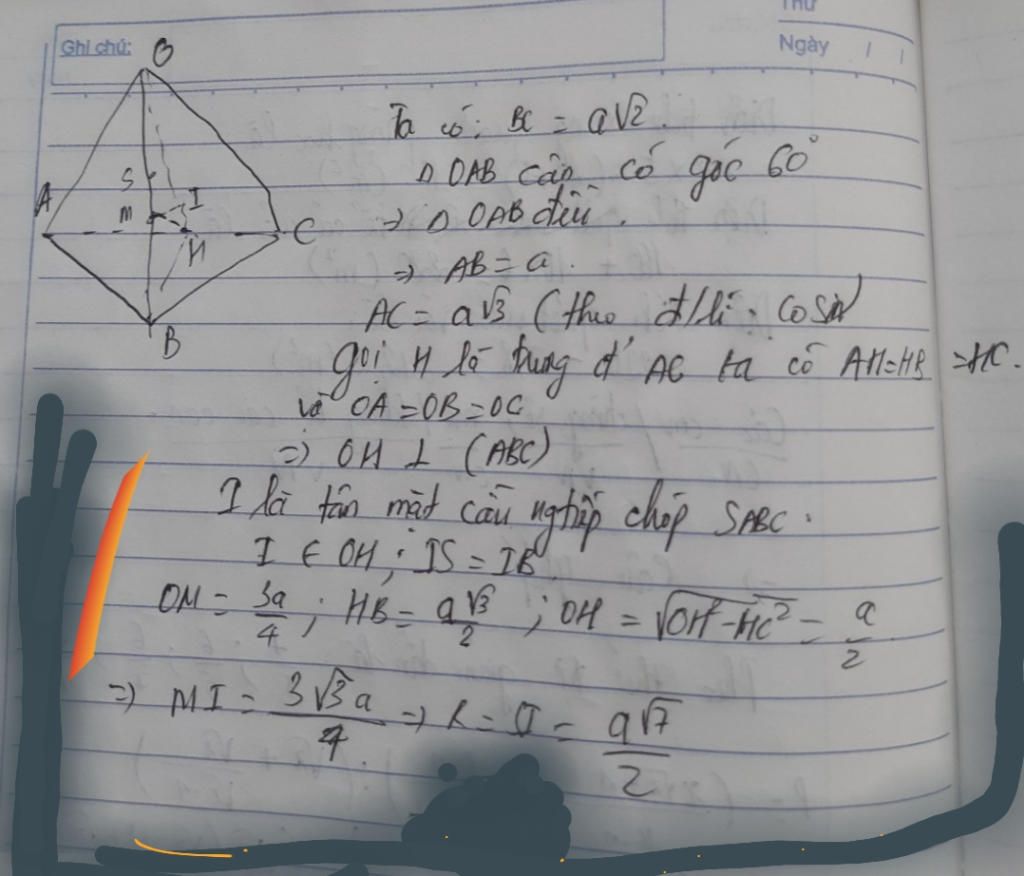 Thứ
Ghi chú:
Ngày / /
O
A
S
M
I
H
C
B
Ta có: BC = a√2.
Δ OAB cân có góc 60°
⇒ Δ OAB đều.
⇒ AB = a.
AC = a√3 (theo đ/lí cosin)
gọi H là trung đ' AC ta có AH=HB=HC.
và OA=OB=OC
⇒ OH ⊥ (ABC)
I là tân mặt cầu nghiệp chóp SABC.
I ∈ OH; IS = IB
OM = 3a/4; HB = a√3/2; OH = √(OH²-HC²) = a/2
⇒ MI = 3√3a/4 ⇒ R = = a√7/2